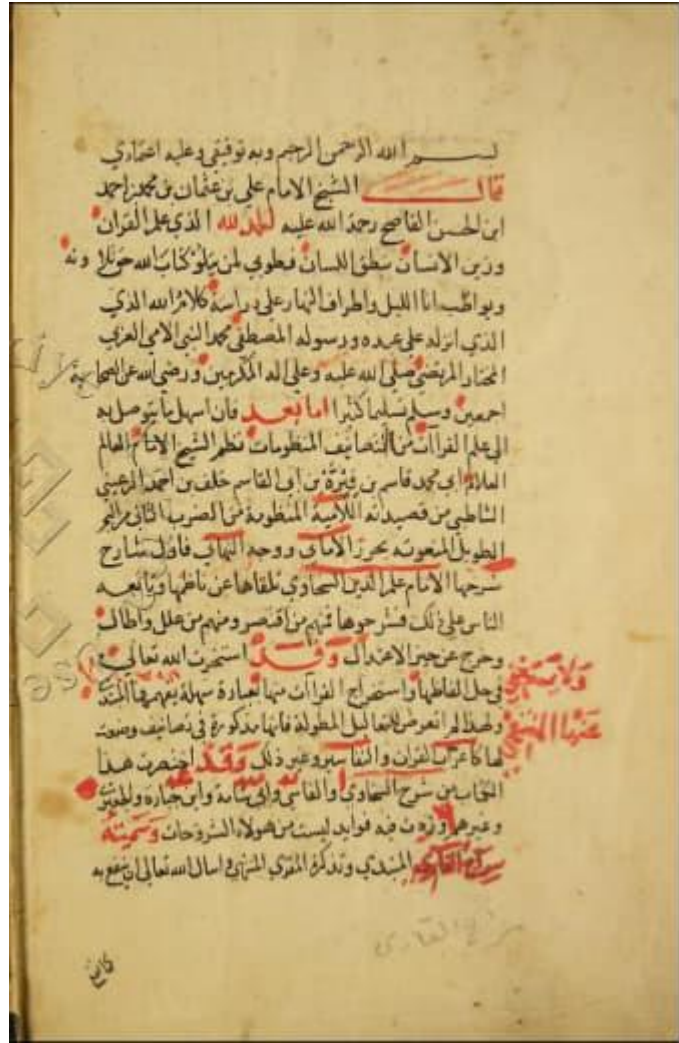 بسم الله الرحمن الرحيم وبه توفيقي وعليه اعتمادي
قال الشيخ الامام علي بن عثمان بن محمد بن احمد
ابن الحسن القاصح رحمة الله عليه الحمد لله الذي علم القران
وزين الانسان بنطق اللسان فطوبي لمن يتلو كتاب الله حق تلاوته
ويواظب انا الليل واطراف النهار على دراسة كلام الله الذي
الذي انزله على عبده ورسوله المصطفى محمد النبي الامي العربي
المختار المرتضى صلى الله عليه وعلى اله المكرمين ورضي الله عن الصحابة
اجمعين وسلم تسليما كثيرا اما بعد فان اسهل ما يتوصل به
الى علم القراآت من التصانيف المنظومات نظم الشيخ الامام العالم
العلامة ابي محمد قاسم بن فيرة بن ابي القاسم خلف بن احمد الرعيني
الشاطبي من قصيدته اللامية المنظومة من الضرب الثاني من البحر
الطويل المنعوتة بحرز الاماني ووجه التهاني فاول شارح
شرحها الامام علم الدين السخاوي تلقاها عن ناظمها وتابعه
الناس على ذلك فشرحوها فمنهم من اقتصر ومنهم من علل واطال
وخرج عن حيز الاعتدال وقد استخرت الله تعالى
في حل الفاظها واستخراج القراآت منها بعبارة سهلة يفهمها المبتدي
ولا يستغني
عنها المنتهي
ولهذا لم اتعرض للتعاليل المطولة فانها مذكورة في تصانيف وضعت
لها كاعراب القران والتفاسير وغير ذلك وقد اختصرت هذا
الكتاب من شرح السخاوي والفاسي وابي شامة وابن جبارة والجعبري
وغيرهم وزدت فيه فوايد ليست من هولاء الشروحات وسميته
سراج القاري المبتدي وتذكرة المقري المنتهي واسال الله تعالى ان ينفع به
سراج القاري